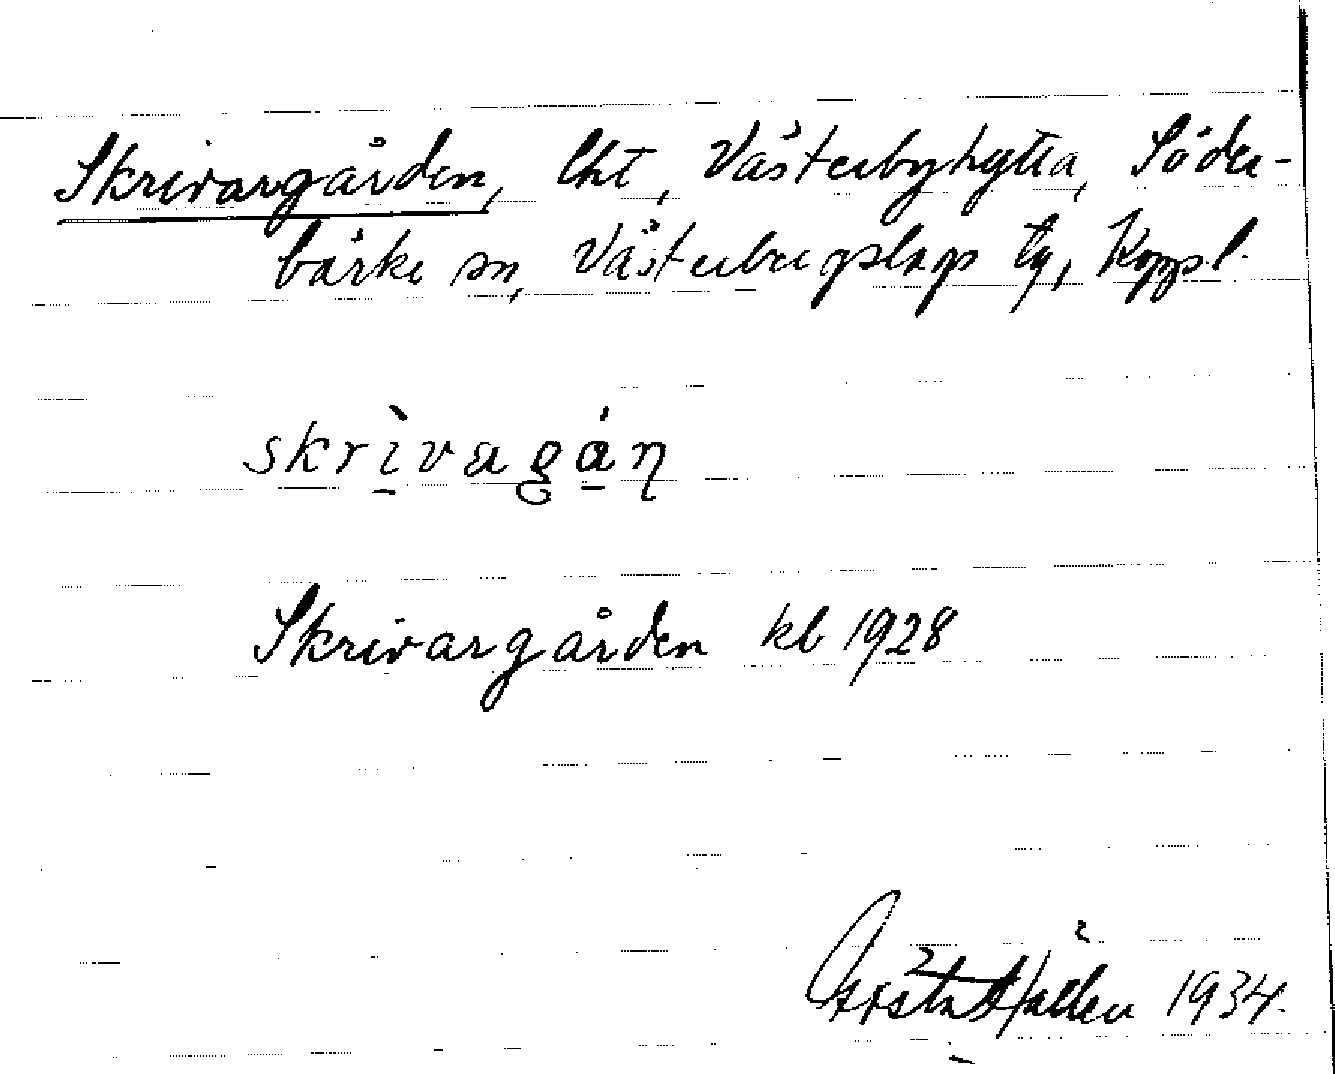 Skrivargården, lht, Västerbyhytta, Söder-
bärke sn, Västerbergslags tg, Koppl.
skrìvagán
Skrivargården kb 1928
Gösta Hallén 1934.